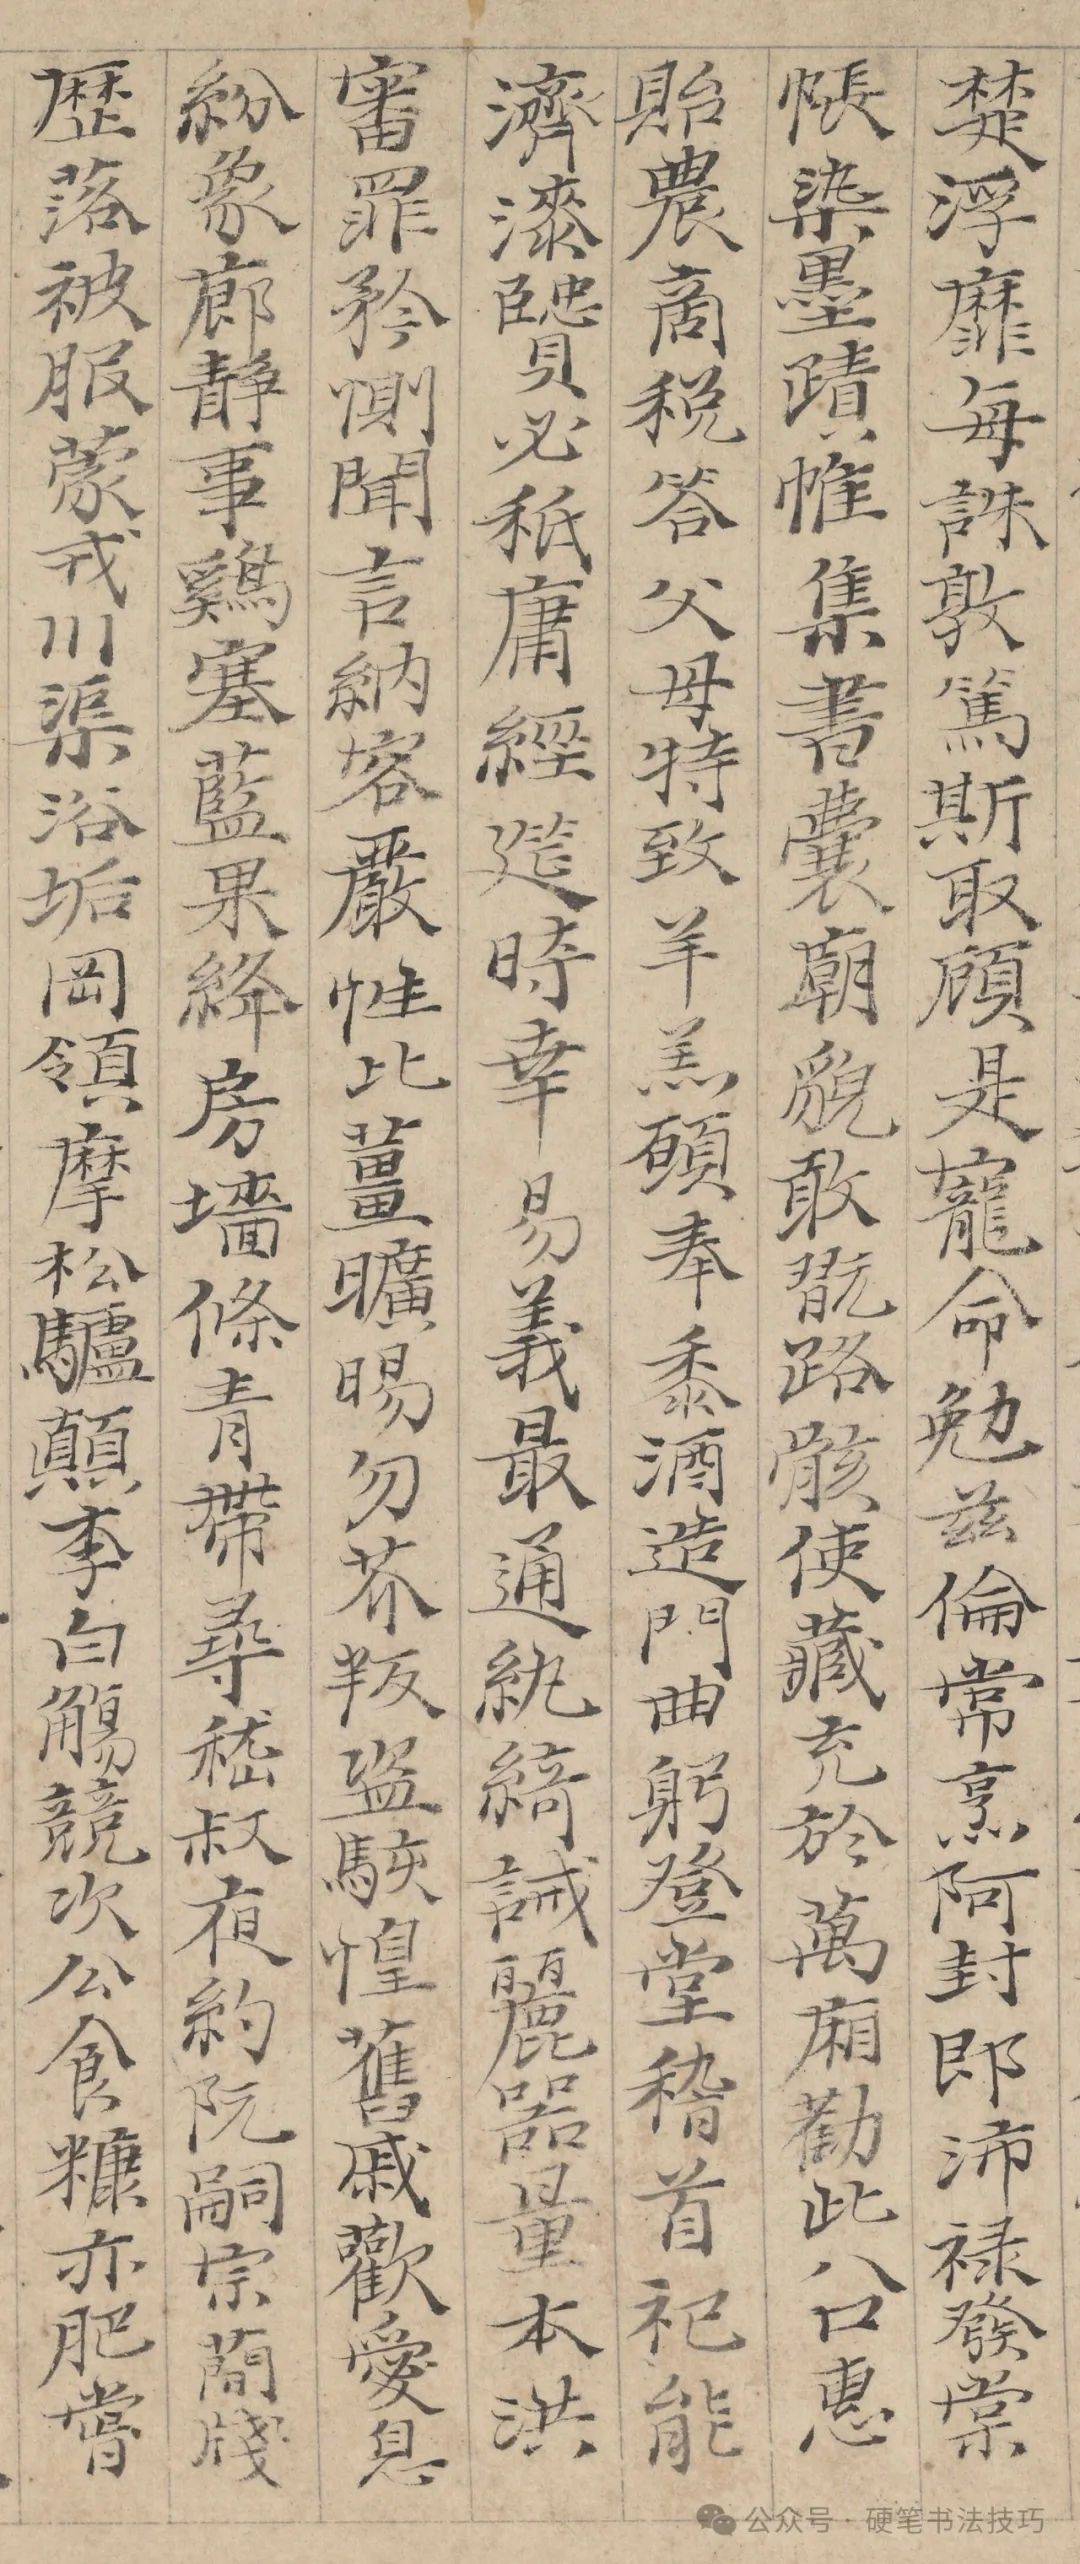 楚浮靡每誅敦篤斯取顧是寵命勉茲倫常烹阿封即沛祿發棠
帳染墨蹟帷集書囊廟貌敢翫路骸使藏充於萬廂勸此八口惠
貽農商税答父母特致羊羔碩奉黍酒造門曲躬登堂稽首祀能
濟漆必秖庸經筵時幸易義最通紈綺誡器量本洪
審罪矜惻聞言納容嚴惟比薑曠賜勿芥叛盜駭惶舊戚歡愛息
紛象廊静事鷄塞藍果絳房墻條青帶尋嵇叔夜約阮嗣宗蕳牋
歷落被服蒙戎川渠浴垢岡領摩松驢顛李白觴競次公食糠亦肥嘗
公众号·硬笔书法技巧